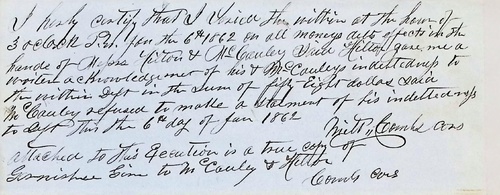 I hereby certify that I levied the within at the hour of
3 oclock P.M. Jan the 6th 1862 on all moneys debts effects in the
hands of Messrs Hilton & McCauley Said Hilton gave me a
writen acknowledgement of his & McCauleys indettedness to
the within Deft in the Sum of fifty Eight dollars said
McCauley refused to make a statment of his indettedness
to Deft this the 6th day of Jan 1862
Combs Cons
attached to this Execution is a true copy of
Garnishee to McCauley & Hilton
Combs Cons